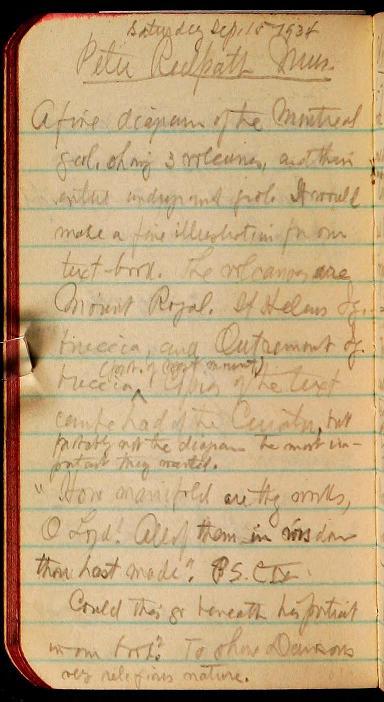 Saturday Sep. 15 1934
Peter Redpath Mus.
A fine diagram of the Montreal
geol. showg 3 volcanoes, and their
entire underground geol. It would
make a fine illustration for our
text-book. The volcanoes are
Mount Royal. St Helens Is.
breccia, and Outremont Is.
(part of east mount)
breccia. Copies of the text
can be had of the Curator, but
probably not the diagram the most im-
portant thing wanted.
"How manifold are thy works,
O Lord! All of them in wisdom
thou hast made". P.S. CIV.
Could this go beneath his portrait
in our book? To show Dawsons
very religious nature.